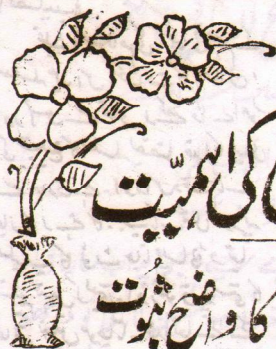 کی اہمیت
کا واضح ثبوت